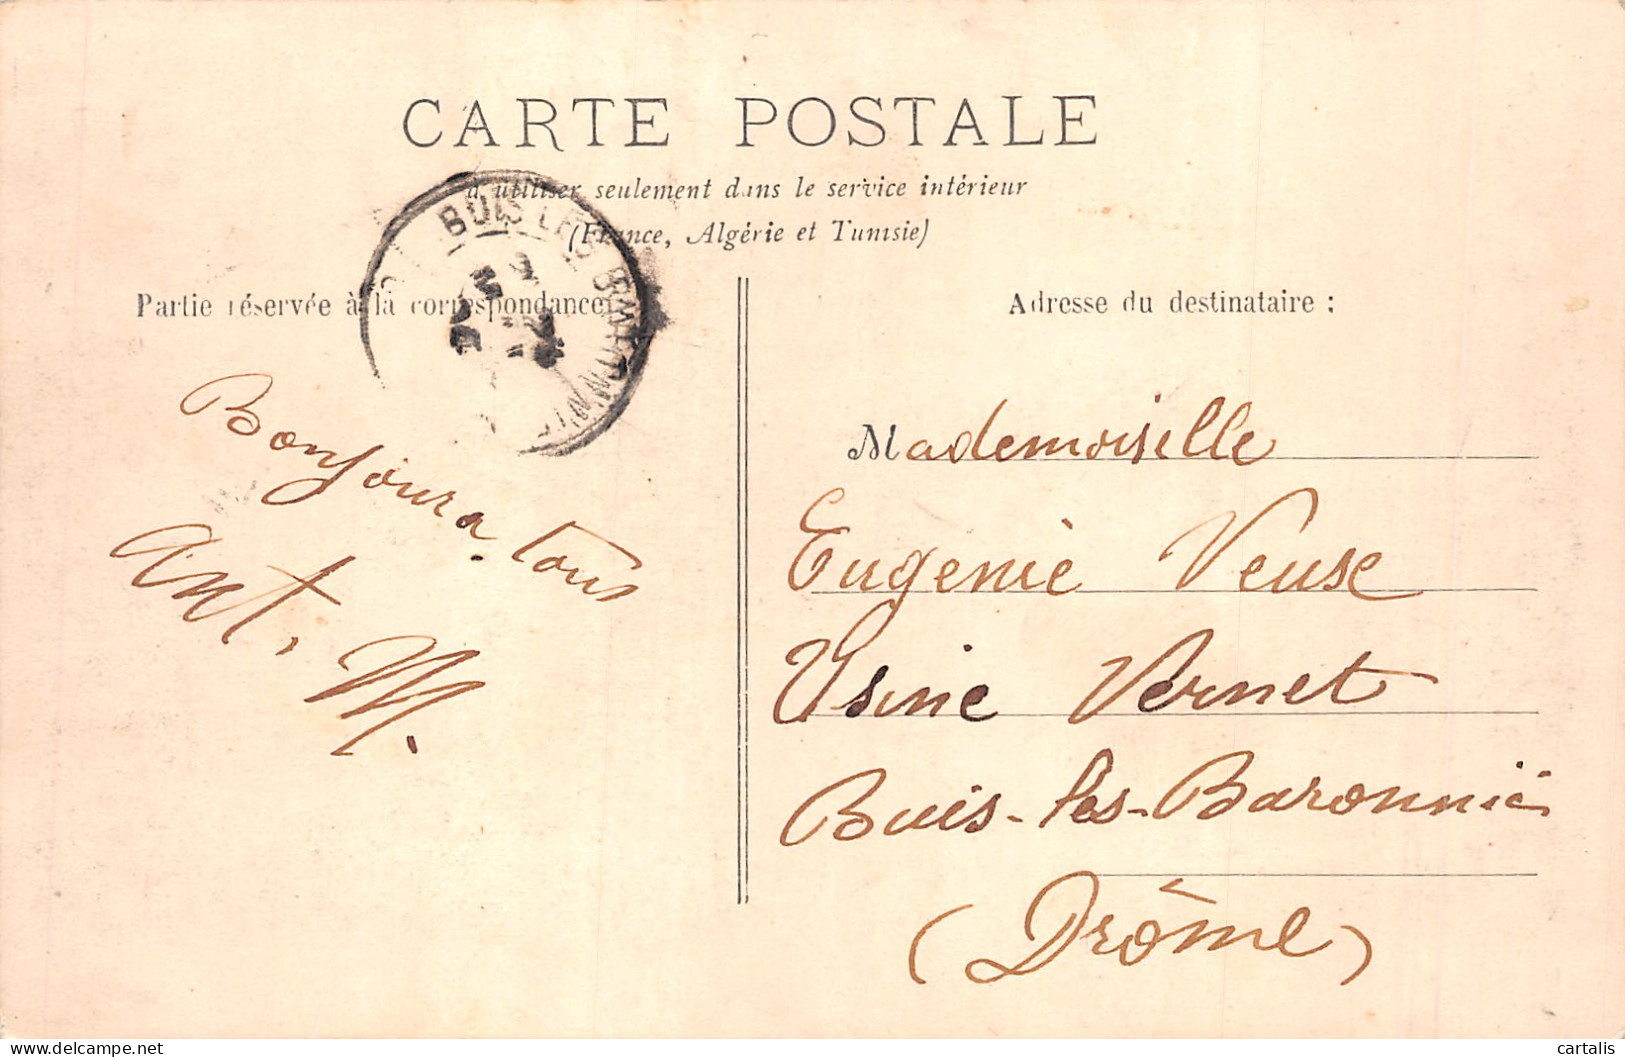 CARTE POSTALE
à utiliser seulement dans le service intérieur
(France, Algérie et Tunisie)
BUIS LES BARONNIES
Partie réservée à la correspondance
Adresse du destinataire :
Bonjour a tous
Ant. M.
Mademoiselle
Eugenie Veuse
Usine Vernet
Buis-les-Baronnies
(Drôme)
delcampe.net
cartalis